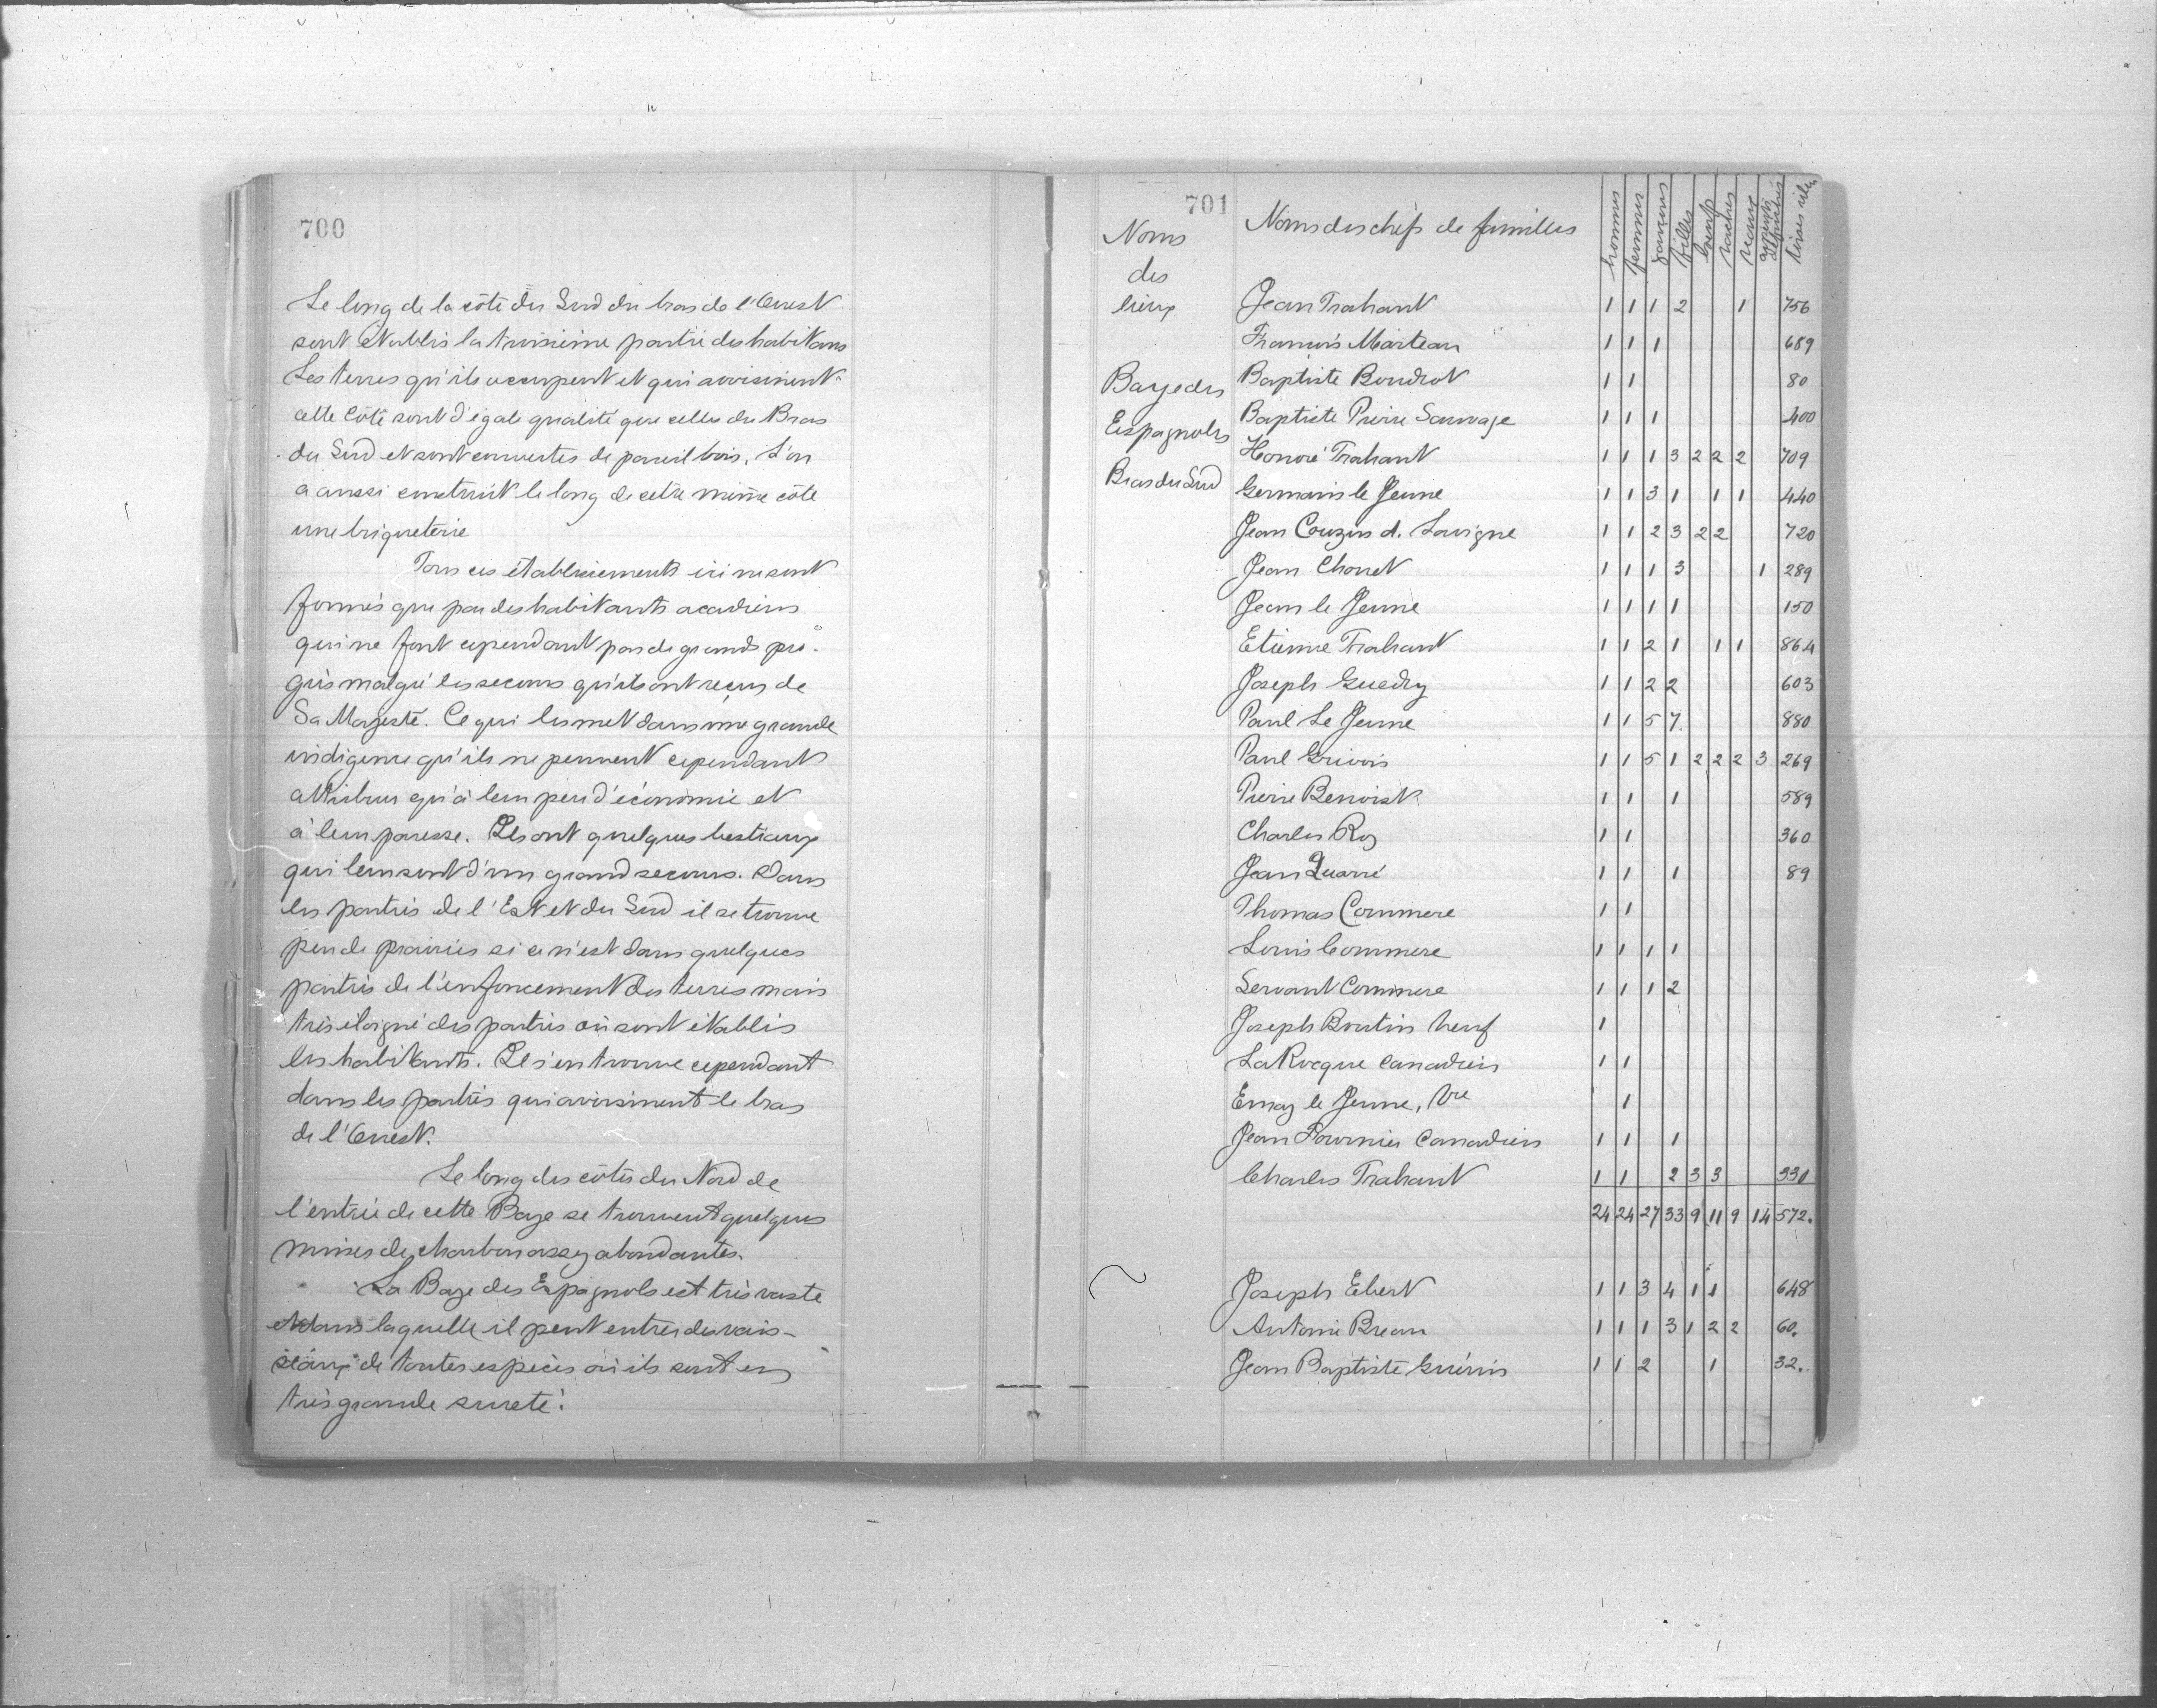 700
Le long de la côte du Sud du bras de l'Ouest
sont établis la troisième partie des habitans
Les terres qu'ils occupent et qui avoisinent
cette Côte sont d'égale qualité que celles du Bras
du Sud et sont couvertes de pareil bois. L'on
a aussi construit le long de cette même côte
une briqueterie
Tous ces établissements ici ne sont
formés que par des habitants acadiens
qui ne font cependant pas de grands pro-
grès malgré les secours qu'ils ont reçus de
Sa Majesté. Ce qui les met dans une grande
indigence qu'ils ne peuvent cependant
attribuer qu'à leur peu d'économie et
à leur paresse. Ils ont quelques bestiaux
qui leur sont d'un grand secours. Dans
les parties de l'Est et du Sud il se trouve
peu de prairies si ce n'est dans quelques
parties de l'enfoncement des terres mais
très éloigné des parties où sont établis
les habitants. Il s'en trouve cependant
dans les parties qui avoisinent le bras
de l'Ouest.
Le long des côtes du Nord de
l'entrée de cette Baye se trouvent quelques
mines de charbon assez abondantes.
La Baye des Espagnols est très vaste
et dans laquelle il peut entrer des vais-
seaux de toutes espèces où ils sont en
très grande sureté.
701
Noms
des
lieux
Noms des chefs de familles
hommes femmes garçons filles boeufs vaches veaux
Baye des
Espagnols
Bras du Sud
Jean Trahant 1 1 1 2 1 756
François Marteau 1 1 1 689
Baptiste Boudrot 1 1 80
Baptiste Pierre Sauvage 1 1 1 400
Honoré Trahant 1 1 1 3 2 2 2 709
Germain le Jeune 1 1 3 1 1 1 440
Jean Couzin d. Lavigne 1 1 2 3 2 2 720
Jean Chonet 1 1 1 3 1 289
Jean le Jeune 1 1 1 1 150
Etienne Trahant 1 1 2 1 1 1 864
Joseph Guedry 1 1 2 2 603
Paul Le Jeune 1 1 5 7 880
Paul Grivois 1 1 5 1 2 2 2 3 269
Pierre Benoist 1 1 1 589
Charles Roy 1 1 360
Jean Quarré 1 1 1 89
Thomas Commere 1 1
Louis Commere 1 1 1 1
Servant Commere 1 1 1 2
Joseph Boutin veuf 1
LaRocque Canadien 1 1
Emay le Jeune, Vve 1
Jean Fournier Canadien 1 1 1
Charles Trahant 1 1 2 3 3 330
24 24 27 33 9 11 9 14 572.
Joseph Ebert 1 1 3 4 1 1 648
Antoine Breau 1 1 1 3 1 2 2 60.
Jean Baptiste Guérin 1 1 2 1 32.